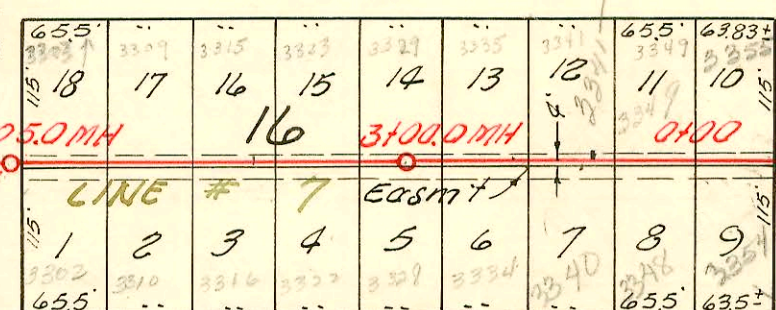 65.5' " " " " " " 65.5' 63.83±
3309 3315 3323 3329 3335 3341 3349 3355
115' 18 17 16 15 14 13 12 11 10 115'
3341 3349
5.0 MH 16 3+00.0 MH 0+00
LINE # 7 Easm't
115' 1 2 3 4 5 6 7 8 9 115'
3302 3310 3316 3322 3328 3334 3340 3348 3354
65.5' " " " " " " 65.5' 63.5±